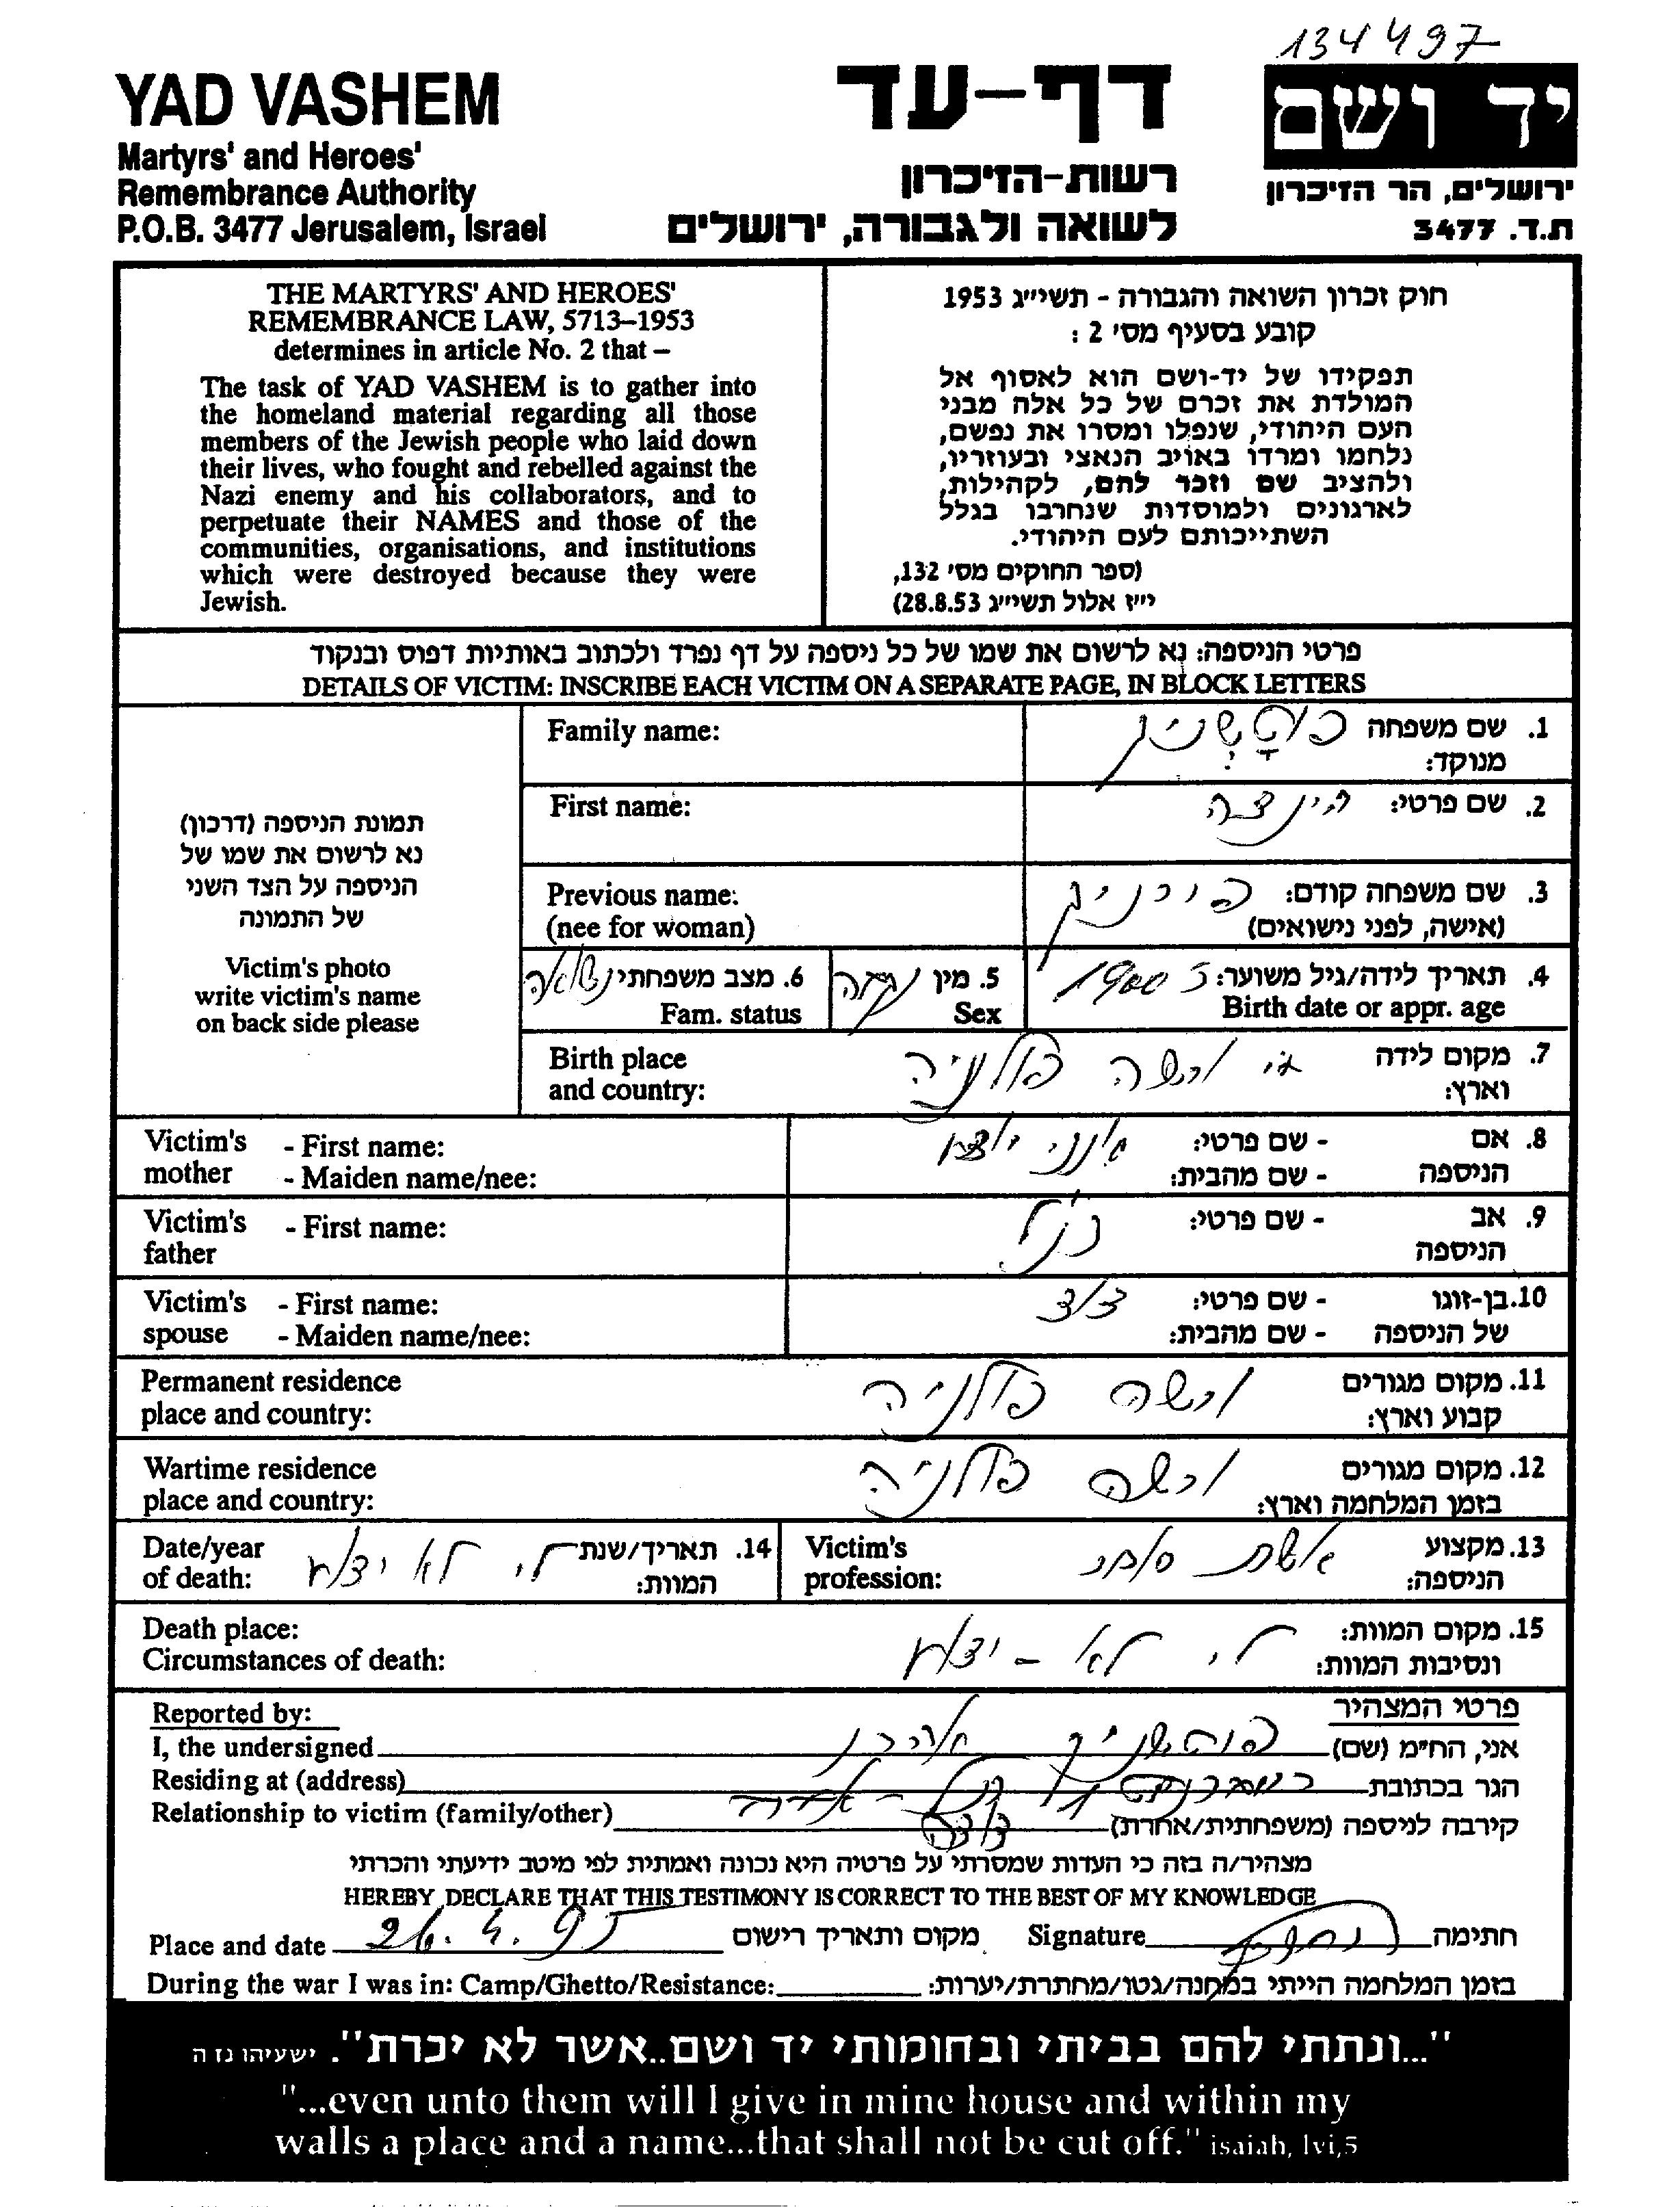 134497
YAD VASHEM
Martyrs' and Heroes'
Remembrance Authority
P.O.B. 3477 Jerusalem, Israel
דף-עד
רשות-הזיכרון
לשואה ולגבורה, ירושלים
יד ושם
ירושלים, הר הזיכרון
ת.ד. 3477
THE MARTYRS' AND HEROES'
REMEMBRANCE LAW, 5713–1953
determines in article No. 2 that –
The task of YAD VASHEM is to gather into
the homeland material regarding all those
members of the Jewish people who laid down
their lives, who fought and rebelled against the
Nazi enemy and his collaborators, and to
perpetuate their NAMES and those of the
communities, organisations, and institutions
which were destroyed because they were
Jewish.
חוק זכרון השואה והגבורה - תשי״ג 1953
קובע בסעיף מס' 2 :
תפקידו של יד-ושם הוא לאסוף אל
המולדת את זכרם של כל אלה מבני
העם היהודי, שנפלו ומסרו את נפשם,
נלחמו ומרדו באויב הנאצי ובעוזריו,
ולהציב שם וזכר להם, לקהילות,
לארגונים ולמוסדות שנחרבו בגלל
השתייכותם לעם היהודי.
(ספר החוקים מס' 132,
י״ז אלול תשי״ג 28.8.53)
פרטי הניספה: נא לרשום את שמו של כל ניספה על דף נפרד ולכתוב באותיות דפוס ובנקוד
DETAILS OF VICTIM: INSCRIBE EACH VICTIM ON A SEPARATE PAGE, IN BLOCK LETTERS
תמונת הניספה (דרכון)
נא לרשום את שמו של
הניספה על הצד השני
של התמונה
Victim's photo
write victim's name
on back side please
Family name:
1. שם משפחה
מנוקד:
First name:
2. שם פרטי: הינצה
Previous name:
(nee for woman)
3. שם משפחה קודם:
(אישה, לפני נישואים)
6. מצב משפחתי נשואה
Fam. status
5. מין נקבה
Sex
4. תאריך לידה/גיל משוער: 1900
Birth date or appr. age
Birth place
and country:
7. מקום לידה ורשה פולניה
וארץ:
Victim's - First name:
mother - Maiden name/nee:
8. אם - שם פרטי: אינני יודע
הניספה - שם מהבית:
Victim's - First name:
father
9. אב - שם פרטי: כנ״ל
הניספה
Victim's - First name:
spouse - Maiden name/nee:
10. בן-זוגו - שם פרטי: דוד
של הניספה - שם מהבית:
Permanent residence
place and country:
11. מקום מגורים ורשה פולניה
קבוע וארץ:
Wartime residence
place and country:
12. מקום מגורים ורשה פולניה
בזמן המלחמה וארץ:
Date/year
of death:
14. תאריך/שנת לי לא ידוע
המוות:
Victim's
profession:
13. מקצוע אשת סוחר
הניספה:
Death place:
Circumstances of death:
15. מקום המוות: לי לא - ידוע
ונסיבות המוות:
Reported by:
פרטי המצהיר
I, the undersigned
אני, הח״מ (שם) אהרן
Residing at (address)
הגר בכתובת
Relationship to victim (family/other)
קירבה לניספה (משפחתית/אחרת) דודה
מצהיר/ה בזה כי העדות שמסרתי על פרטיה היא נכונה ואמתית לפי מיטב ידיעתי והכרתי
HEREBY DECLARE THAT THIS TESTIMONY IS CORRECT TO THE BEST OF MY KNOWLEDGE
Place and date 26.4.95 מקום ותאריך רישום Signature חתימה
During the war I was in: Camp/Ghetto/Resistance: בזמן המלחמה הייתי במחנה/גטו/מחתרת/יערות:
"...ונתתי להם בביתי ובחומותי יד ושם..אשר לא יכרת". ישעיהו נז ה
"...even unto them will I give in mine house and within my
walls a place and a name...that shall not be cut off." isaiah, lvi,5